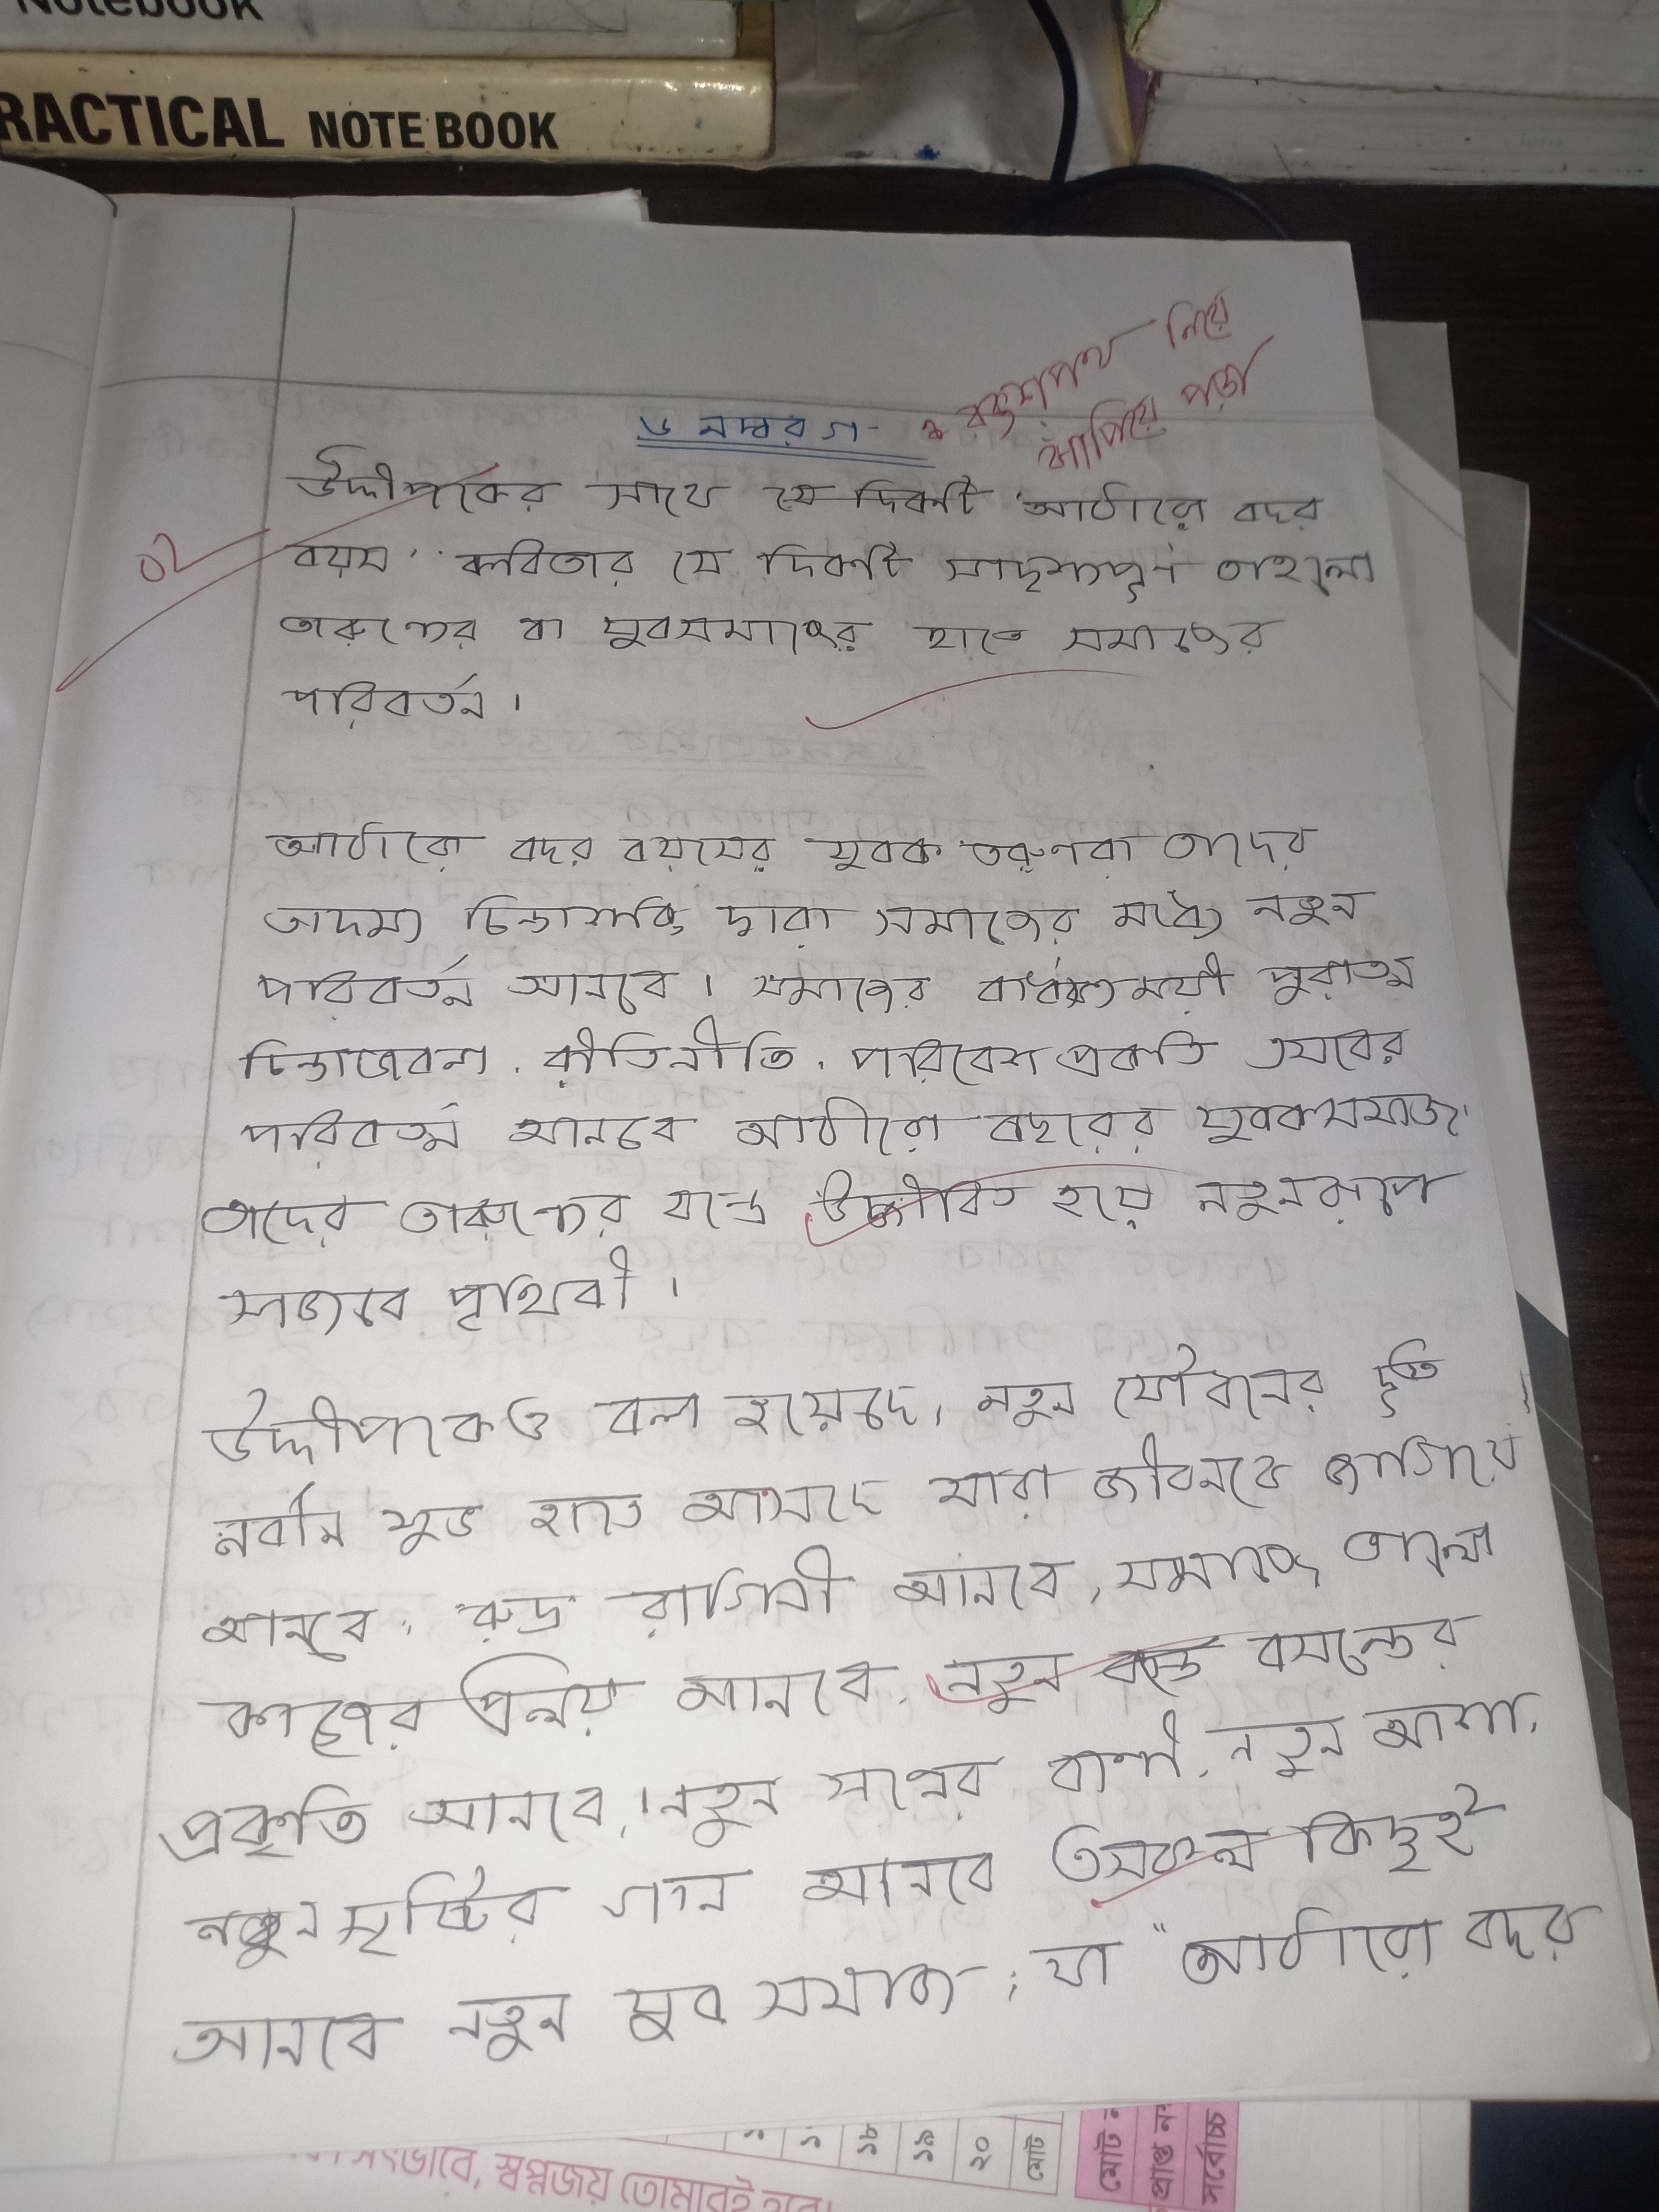 Notebook
RACTICAL NOTE BOOK
রক্তশপথ নিয়ে
ঝাঁপিয়ে পড়া
৬ নম্বর গ
উদ্দীপকের সাথে যে দিকটি 'আঠারো বছর
০২
বয়স' কবিতার যে দিকটি সাদৃশ্যপূর্ণ তাহলো
তারুণ্যের বা যুবসমাজের হাতে সমাজের
পরিবর্তন।
আঠারো বছর বয়সের যুবক তরুণরা তাদের
অদম্য চিন্তাশক্তি দ্বারা সমাজের মধ্যে নতুন
পরিবর্তন আনবে। সমাজের পুরাতন
চিন্তাভাবনা, রীতিনীতি, পরিবেশ প্রকৃতি এসবের
পরিবর্তন আনবে আঠারো বছরের যুবকসমাজ।
তাদের তারুণ্যের উজ্জীবিত হয়ে নতুনরূপে
সাজবে পৃথিবী।
উদ্দীপকেও বলা হয়েছে, নতুন যৌবনের দূত
নবীন যুভ হাতে আসছে যারা জীবনকে জাগিয়ে
আনবে, রুদ্র রাগিনী আনবে, সমাজে ভালো
কাজের প্রলয় আনবে, নতুন বসন্তের
প্রকৃতি আনবে, নতুন বাণী, নতুন আশা,
নতুন সৃষ্টির গান আনবে এসকল কিছুই
আনবে নতুন যুব সমাজ; যা "আঠারো বছর
১৮
১৯
২০
মোট
মোট ন
প্রাপ্ত নম্
সর্বোচ্চ
স্বপ্নজয় তোমারই হবে।